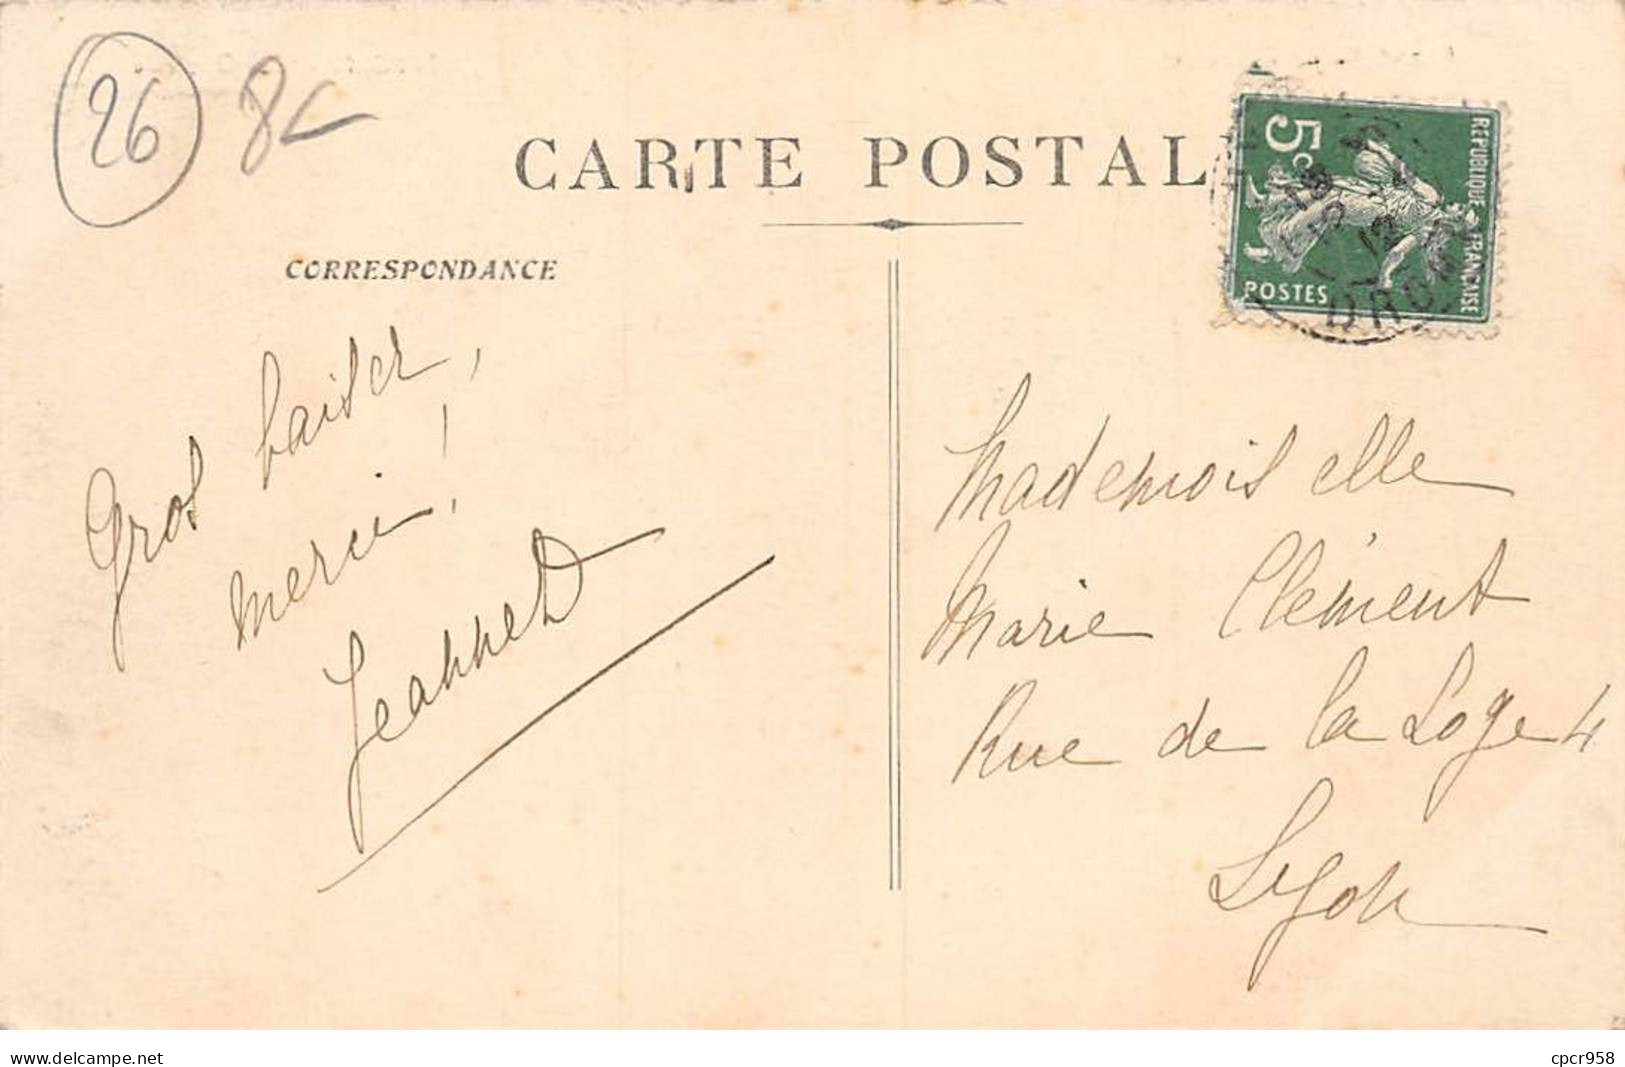 26 8c
CARTE POSTAL
5c
REPUBLIQUE FRANÇAISE
POSTES
12
DROM
CORRESPONDANCE
Gros baiser,
merci!
Jeanne D
Mademoiselle
Marie Clément
Rue de la Loge 4
Lyon
delcampe.net
cpcr958